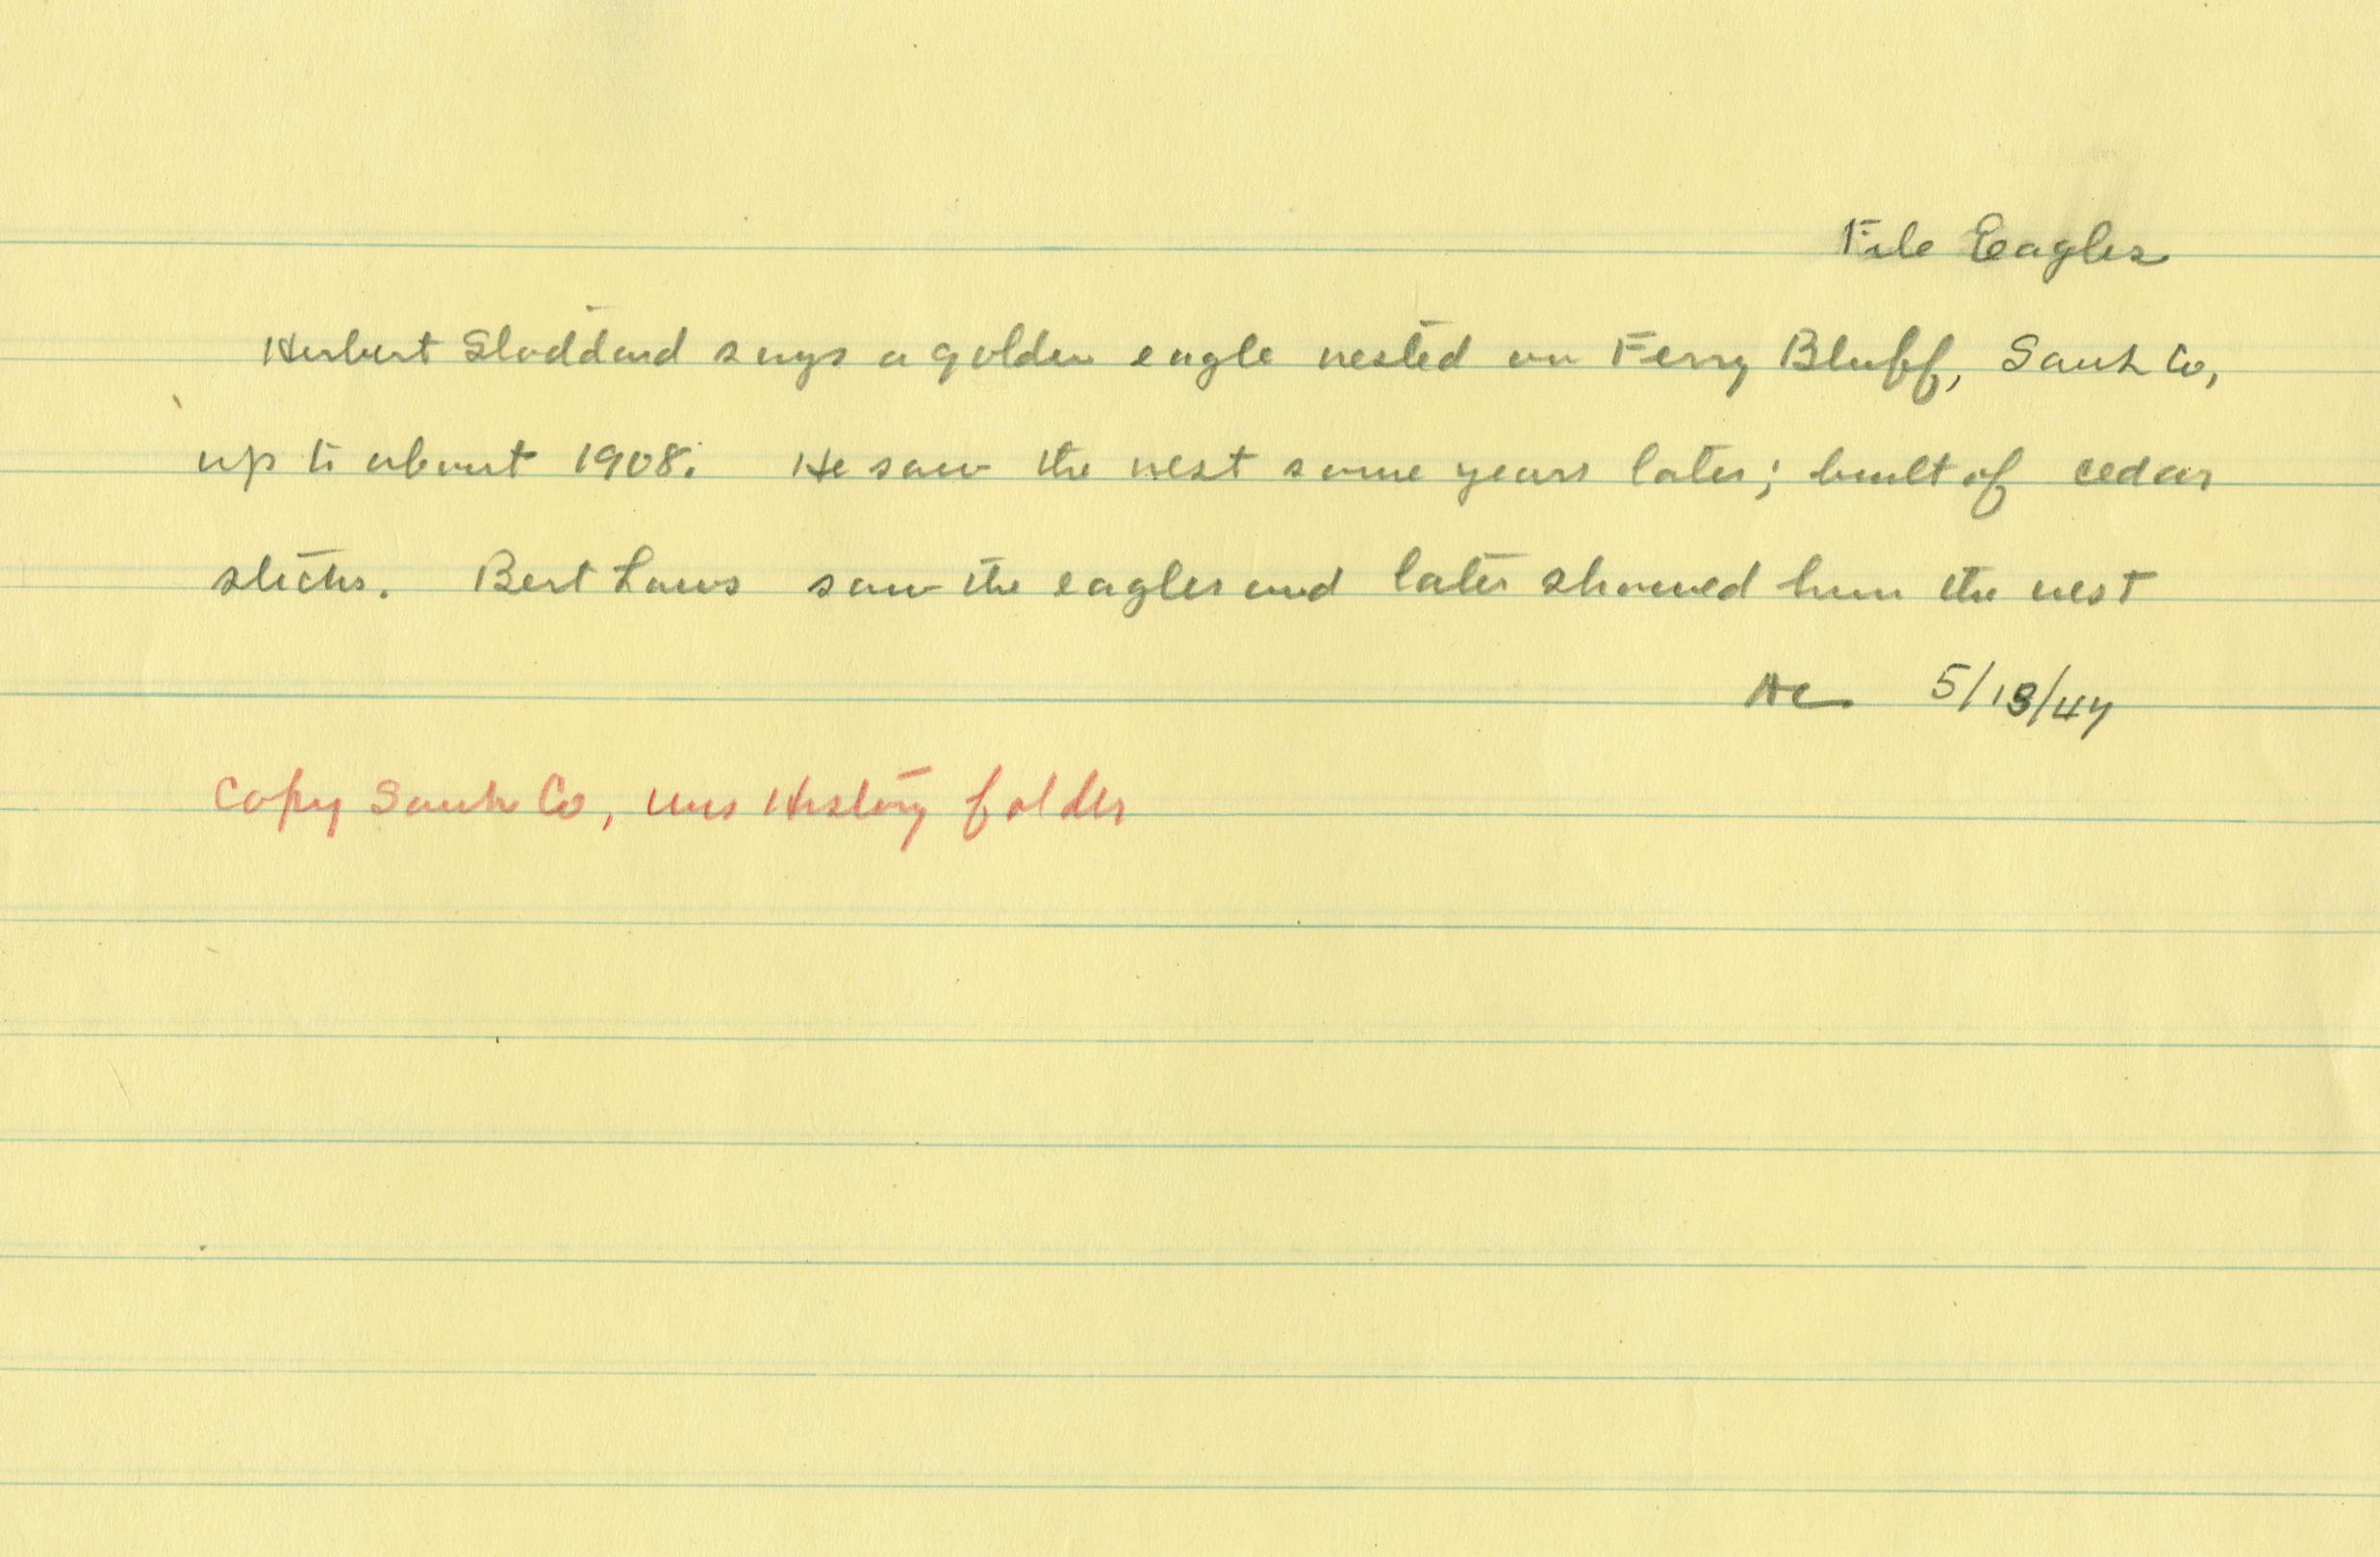 File Eagles
Herbert Stoddard says a golden eagle nested on Ferry Bluff, Sauk Co,
up to about 1908. He saw the nest some years later; built of cedar
sticks. Bert Laws saw the eagles and later showed him the nest
5/13/47
Copy Sauk Co, Wis History folder